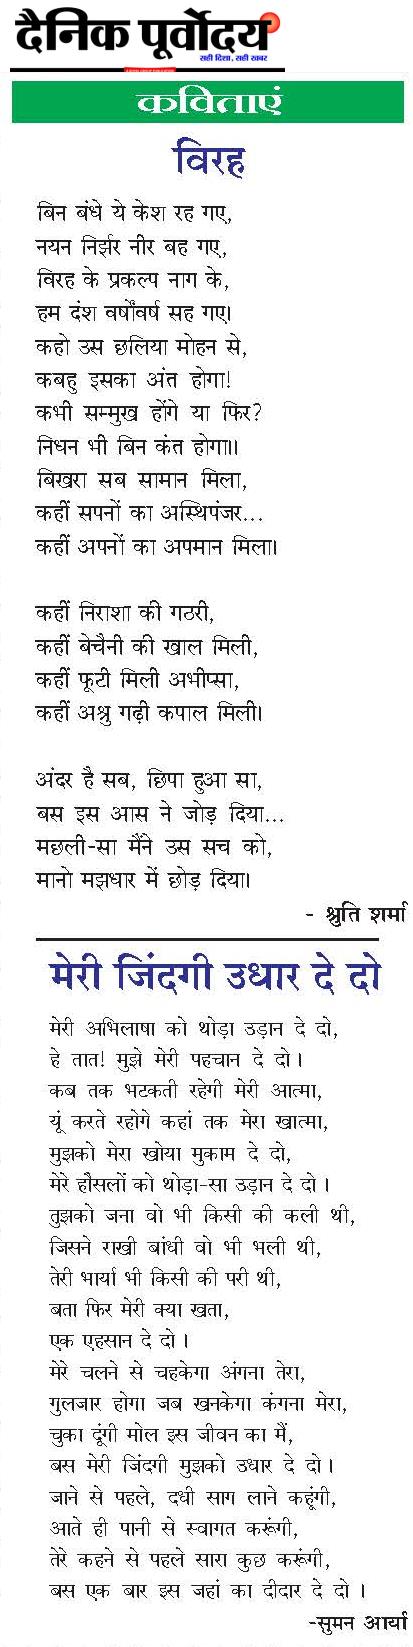 दैनिक पूर्वोदय
सही दिशा, सही खबर
कविताएं
विरह
बिन बंधे ये केश रह गए,
नयन निर्झर नीर बह गए,
विरह के प्रकल्प नाग के,
हम दंश वर्षोंवर्ष सह गए।
कहो उस छलिया मोहन से,
कबहु इसका अंत होगा!
कभी सम्मुख होंगे या फिर?
निधन भी बिन कंत होगा॥
बिखरा सब सामान मिला,
कहीं सपनों का अस्थिपंजर...
कहीं अपनों का अपमान मिला।
कहीं निराशा की गठरी,
कहीं बेचैनी की खाल मिली,
कहीं फूटी मिली अभीप्सा,
कहीं अश्रु गढ़ी कपाल मिली।
अंदर है सब, छिपा हुआ सा,
बस इस आस ने जोड़ दिया...
मछली-सा मैंने उस सच को,
मानो मझधार में छोड़ दिया।
- श्रुति शर्मा
मेरी जिंदगी उधार दे दो
मेरी अभिलाषा को थोड़ा उड़ान दे दो,
हे तात! मुझे मेरी पहचान दे दो ।
कब तक भटकती रहेगी मेरी आत्मा,
यूं करते रहोगे कहां तक मेरा खात्मा,
मुझको मेरा खोया मुकाम दे दो,
मेरे हौसलों को थोड़ा-सा उड़ान दे दो ।
तुझको जना वो भी किसी की कली थी,
जिसने राखी बांधी वो भी भली थी,
तेरी भार्या भी किसी की परी थी,
बता फिर मेरी क्या खता,
एक एहसान दे दो ।
मेरे चलने से चहकेगा अंगना तेरा,
गुलजार होगा जब खनकेगा कंगना मेरा,
चुका दूंगी मोल इस जीवन का मैं,
बस मेरी जिंदगी मुझको उधार दे दो ।
जाने से पहले, दधी साग लाने कहूंगी,
आते ही पानी से स्वागत करूंगी,
तेरे कहने से पहले सारा कुछ करूंगी,
बस एक बार इस जहां का दीदार दे दो ।
-सुमन आर्या